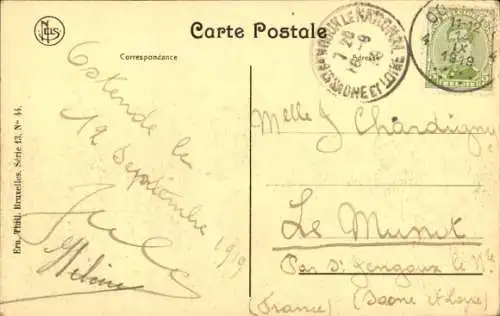 Nels
Carte Postale
Correspondance
Adresse
Ern. Thill, Bruxelles, Série 13, No 44.
Ostende le
12 Septembre 1919
Melle J Chardigny
Le Munot
Par St Gengoux le Nal
(France) (Saone et Loire)
SAONE ET LOIRE
12
IX
1919